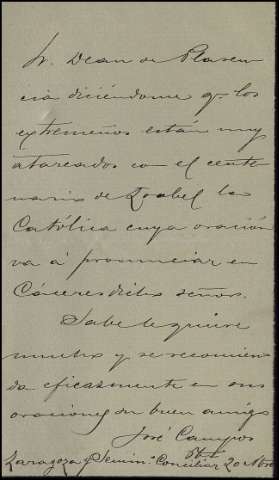 Sr. Dean de Plasen
cia diciéndome q. los
extremeños están muy
atareados con el cente
nario de Isabel la
Católica cuya oración
va á pronunciar en
Cáceres dicho señor.
Sabe le quiere
mucho y se recomien
da eficazmente en sus
oraciones su buen amigo
José Campos
Zaragoza y Semin.º Conciliar 20 Nbre